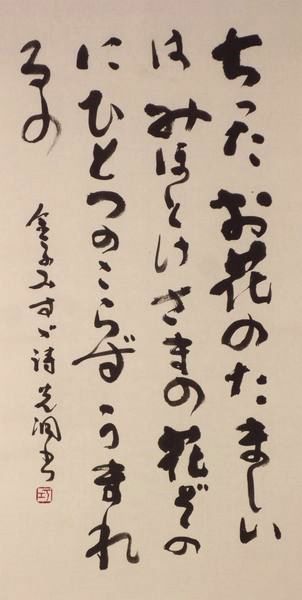 ちったお花のたましい
はみほとけさまの花ぞの
にひとつのこらずうまれ
るの
金子みすゞ詩 光洞書